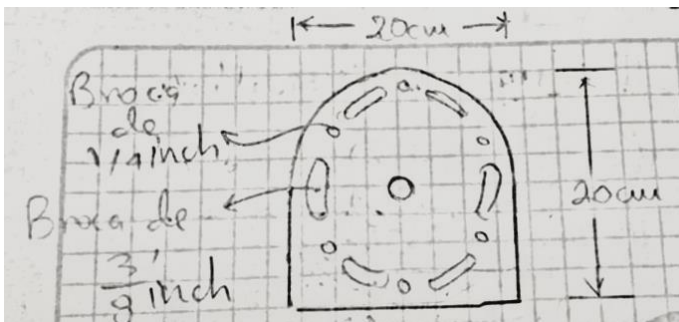 20cm
Broca
de
1/4 inch
Broca de
3/8 inch
20cm